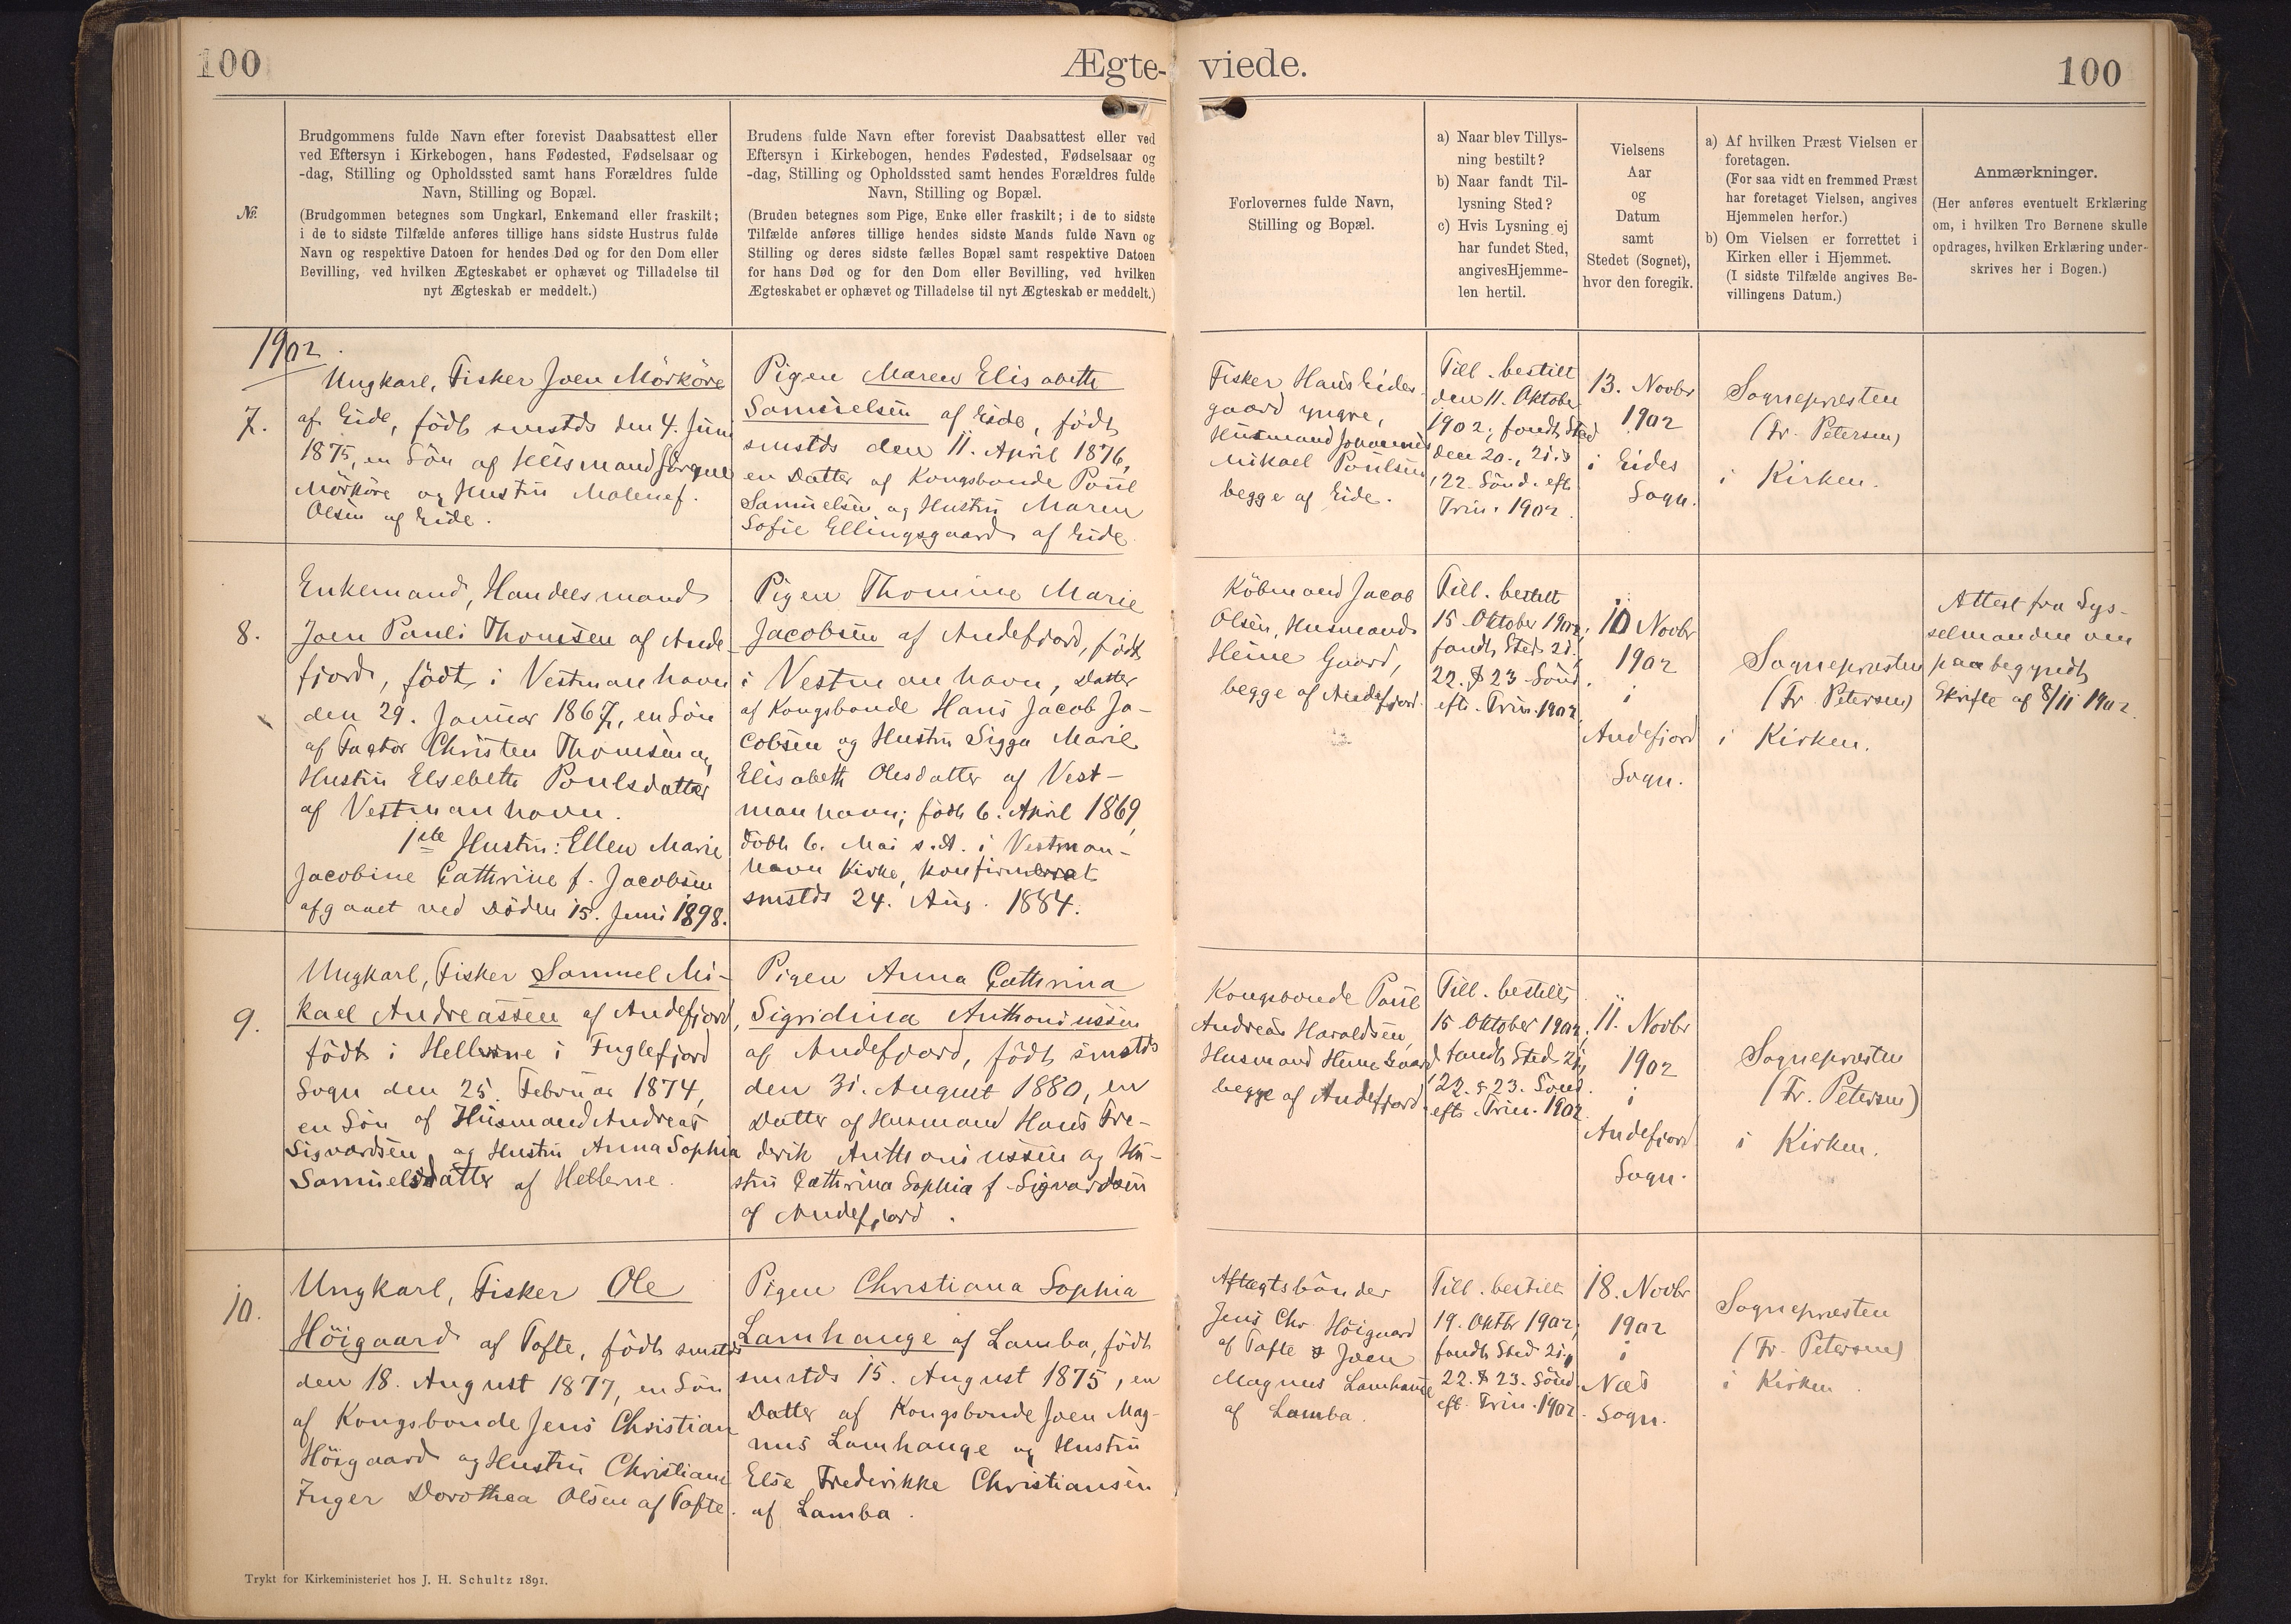 100
Ægte-
viede.
100
№.
Brudgommens fulde Navn efter forevist Daabsattest eller
ved Eftersyn i Kirkebogen, hans Fødested, Fødselsaar og
-dag, Stilling og Opholdssted samt hans Forældres fulde
Navn, Stilling og Bopæl.
(Brudgommen betegnes som Ungkarl, Enkemand eller fraskilt;
i de to sidste Tilfælde anføres tillige hans sidste Hustrus fulde
Navn og respektive Datoen for hendes Død og for den Dom eller
Bevilling, ved hvilken Ægteskabet er ophævet og Tilladelse til
nyt Ægteskab er meddelt.)
Brudens fulde Navn efter forevist Daabsattest eller ved
Eftersyn i Kirkebogen, hendes Fødested, Fødselsaar og
-dag, Stilling og Opholdssted samt hendes Forældres fulde
Navn, Stilling og Bopæl.
(Bruden betegnes som Pige, Enke eller fraskilt; i de to sidste
Tilfælde anføres tillige hendes sidste Mands fulde Navn og
Stilling og deres sidste fælles Bopæl samt respektive Datoen
for hans Død og for den Dom eller Bevilling, ved hvilken
Ægteskabet er ophævet og Tilladelse til nyt Ægteskab er meddelt.)
Forlovernes fulde Navn,
Stilling og Bopæl.
a) Naar blev Tillys-
ning bestilt?
b) Naar fandt Til-
lysning Sted?
c) Hvis Lysning ej
har fundet Sted,
angivesHjemme-
len hertil.
Vielsens
Aar
og
Datum
samt
Stedet (Sognet),
hvor den foregik.
a) Af hvilken Præst Vielsen er
foretagen.
(For saa vidt en fremmed Præst
har foretaget Vielsen, angives
Hjemmelen herfor.)
b) Om Vielsen er forrettet i
Kirken eller i Hjemmet.
(I sidste Tilfælde angives Be-
villingens Datum.)
Anmærkninger.
(Her anføres eventuelt Erklæring
om, i hvilken Tro Børnene skulle
opdrages, hvilken Erklæring under-
skrives her i Bogen.)
1902.
7.
Ungkarl, Fisker Joen Mörköre
af Eide, födt smstds den 4. Juni
1875, en Sön af Husmand Jörgen
Mörköre og Hustru Malene f.
Olsen af Eide.
Pigen Maren Elisabeth
Samuelsen af Eide, födt
smstds den 11. April 1876,
en Datter af Kongsbonde Poul
Samuelsen og Hustru Maren
Sofie Ellingsgaard af Eide.
Fisker Hans Eides-
gaard yngre,
Husmand Johannes
Mikael Poulsen
begge af Eide.
Till. bestilt
den 11. Oktober
1902; fandt Sted
den 20., 21. &
22. Sönd. eft.
Trin. 1902.
13. Novbr
1902
i Eides
Sogn.
Sognepræsten
(Fr. Petersen)
i Kirken.
8.
Enkemand, Handelsmand
Joen Pauli Thomsen af Ande-
fjord, födt i Vestmanhavn
den 29. Januar 1867, en Sön
af Factor Christen Thomsen og
Hustru Elsebeth Poulsdatter
af Vestmanhavn.
1ste Hustru: Ellen Marie
Jacobine Cathrine f. Jacobsen
afgaaet ved Døden 15. Juni 1898.
Pigen Thomine Marie
Jacobsen af Andefjord, födt
i Vestmanhavn, Datter
af Kongsbonde Hans Jacob Ja-
cobsen og Hustru Sigga Marie
Elisabeth Olesdatter af Vest-
manhavn; födt 6. April 1869,
döbt 6. Mai s.A. i Vestman-
havn Kirke, konfirmeret
smstds 24. Aug. 1884.
Köbmand Jacob
Olsen, Husmand
Heine Gaard,
begge af Andefjord.
Till. bestilt
15. Oktober 1902;
fandt Sted 21.,
22. & 23. Sönd.
eft. Trin. 1902.
10 Novbr
1902
i
Andefjord
Sogn.
Sognepræsten
(Fr. Petersen)
i Kirken.
Attest fra Sys-
selmanden om
paabegyndt
Skifte af 8/11 1902.
9.
Ungkarl, Fisker Samuel Mi-
kael Andreassen af Andefjord,
födt i Hellerne i Fuglefjord
Sogn den 25. Februar 1874,
en Sön af Husmand Andreas
Sigvardsen og Hustru Anna Sophia
Samuelsdatter af Hellerne.
Pigen Anna Cathrina
Sigridina Anthoniussen
af Andefjord, födt smstds
den 31. August 1880, en
Datter af Husmand Hans Fre-
derik Anthoniussen og Hu-
stru Cathrina Sophia f. Sigvardsen
af Andefjord.
Kongsbonde Poul
Andreas Haraldsen,
Husmand Heine Gaard
begge af Andefjord.
Till. bestilt
15 Oktober 1902;
fandt Sted 21.,
22. & 23. Sönd.
eft. Trin. 1902.
11. Novbr
1902
i
Andefjord
Sogn.
Sognepræsten
(Fr. Petersen)
i Kirken.
10.
Ungkarl, Fisker Ole
Höigaard af Tofte, födt smstds
den 18. August 1877, en Sön
af Kongsbonde Jens Christian
Höigaard og Hustru Christiane
Inger Dorothea Olsen af Tofte.
Pigen Christiana Sophia
Lamhauge af Lamba, födt
smstds 15. August 1875, en
Datter af Kongsbonde Joen Mag-
nus Lamhauge og Hustru
Else Frederikke Christiansen
af Lamba.
Aftægtsbönder
Jens Chr. Höigaard
af Tofte & Joen
Magnus Lamhauge
af Lamba.
Till. bestilt
19. Oktbr 1902;
fandt Sted 21.,
22. & 23. Sönd.
eft. Trin. 1902.
18. Novbr
1902
i
Næs
Sogn.
Sognepræsten
(Fr. Petersen)
i Kirken.
Trykt for Kirkeministeriet hos J. H. Schultz 1891.